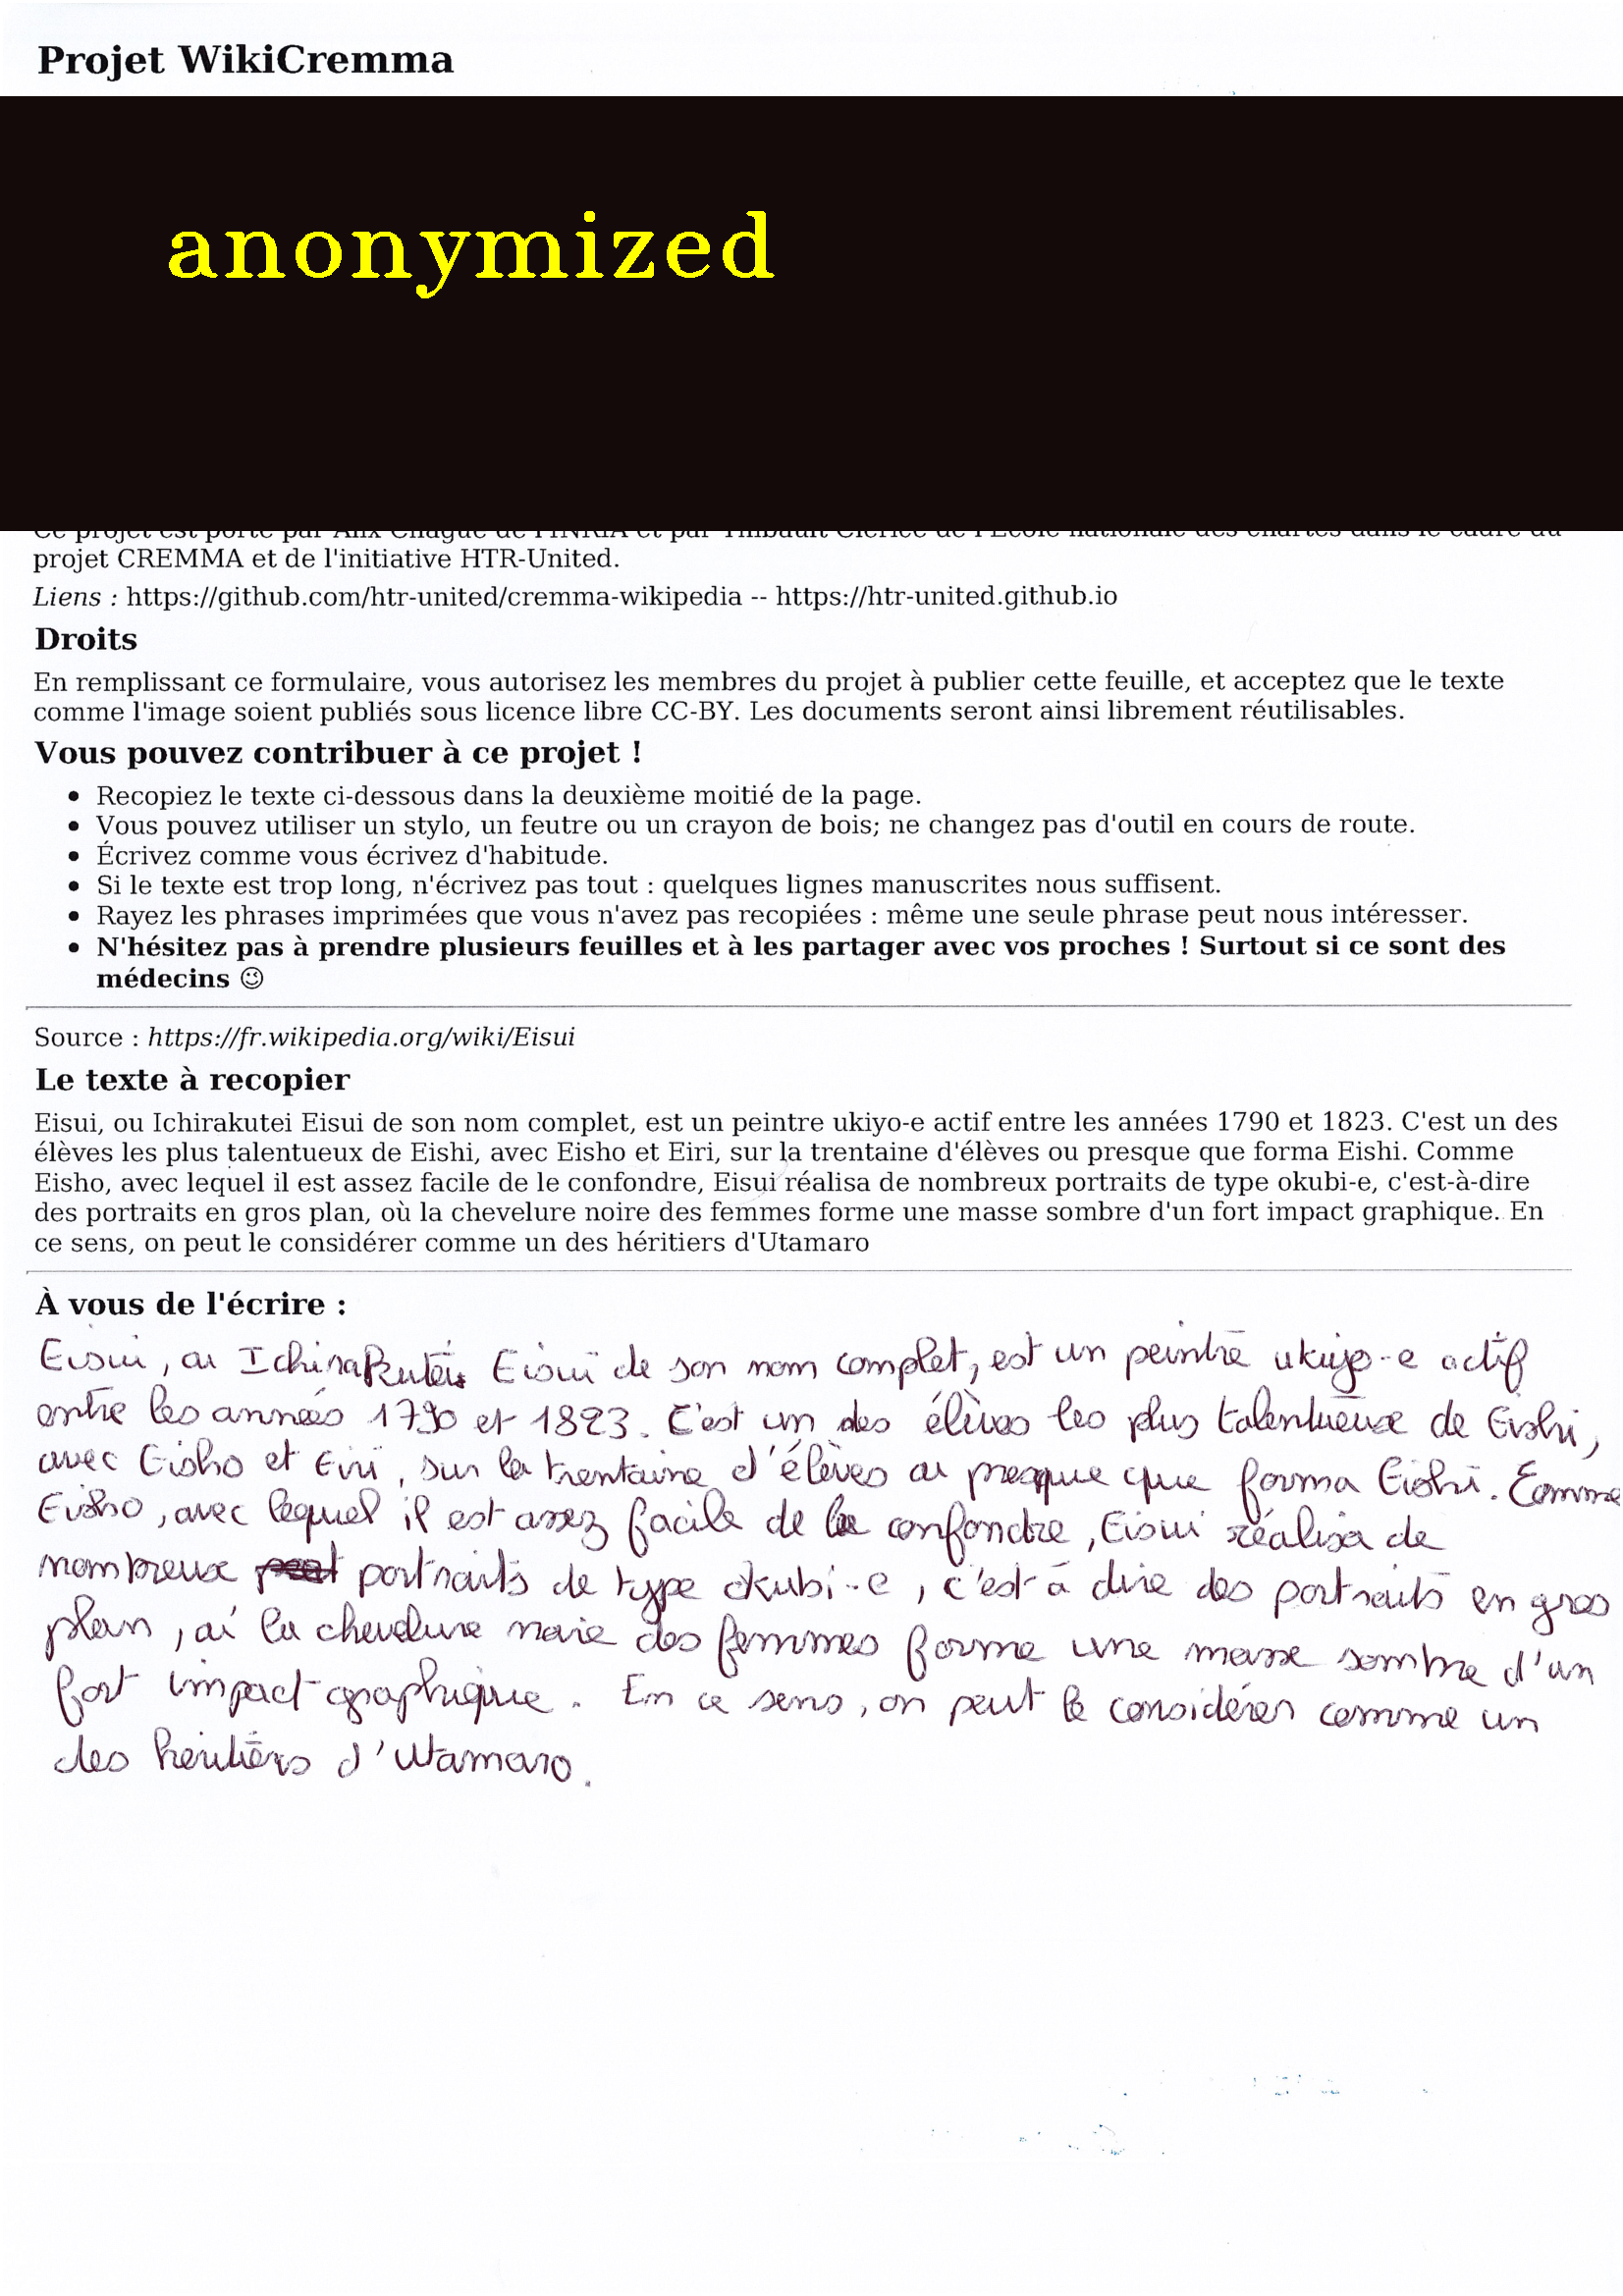 Projet WikiCremma
anonymized
Ce projet est porté par Alix Chagué de l'INRIA et par Thibault Clérice de l'École nationale des chartes dans le cadre du
projet CREMMA et de l'initiative HTR-United.
Liens : https://github.com/htr-united/cremma-wikipedia -- https://htr-united.github.io
Droits
En remplissant ce formulaire, vous autorisez les membres du projet à publier cette feuille, et acceptez que le texte
comme l'image soient publiés sous licence libre CC-BY. Les documents seront ainsi librement réutilisables.
Vous pouvez contribuer à ce projet !
• Recopiez le texte ci-dessous dans la deuxième moitié de la page.
• Vous pouvez utiliser un stylo, un feutre ou un crayon de bois; ne changez pas d'outil en cours de route.
• Écrivez comme vous écrivez d'habitude.
• Si le texte est trop long, n'écrivez pas tout : quelques lignes manuscrites nous suffisent.
• Rayez les phrases imprimées que vous n'avez pas recopiées : même une seule phrase peut nous intéresser.
• N'hésitez pas à prendre plusieurs feuilles et à les partager avec vos proches ! Surtout si ce sont des
médecins 😉
Source : https://fr.wikipedia.org/wiki/Eisui
Le texte à recopier
Eisui, ou Ichirakutei Eisui de son nom complet, est un peintre ukiyo-e actif entre les années 1790 et 1823. C'est un des
élèves les plus talentueux de Eishi, avec Eisho et Eiri, sur la trentaine d'élèves ou presque que forma Eishi. Comme
Eisho, avec lequel il est assez facile de le confondre, Eisui réalisa de nombreux portraits de type okubi-e, c'est-à-dire
des portraits en gros plan, où la chevelure noire des femmes forme une masse sombre d'un fort impact graphique. En
ce sens, on peut le considérer comme un des héritiers d'Utamaro
À vous de l'écrire :
Eisui, ou Ichirakutei Eisui de son nom complet, est un peintre ukiyo-e actif
entre les années 1790 et 1823. C'est un des élèves les plus talentueux de Eishi,
avec Eisho et Eiri, sur la trentaine d'élèves ou presque que forma Eishi. Comme
Eisho, avec lequel il est assez facile de le confondre, Eisui réalisa de
nombreux portraits de type okubi-e, c'est-à dire des portraits en gros
plan, où la chevelure noire des femmes forme une masse sombre d'un
fort impact graphique. En ce sens, on peut le considérer comme un
des héritiers d'Utamaro.